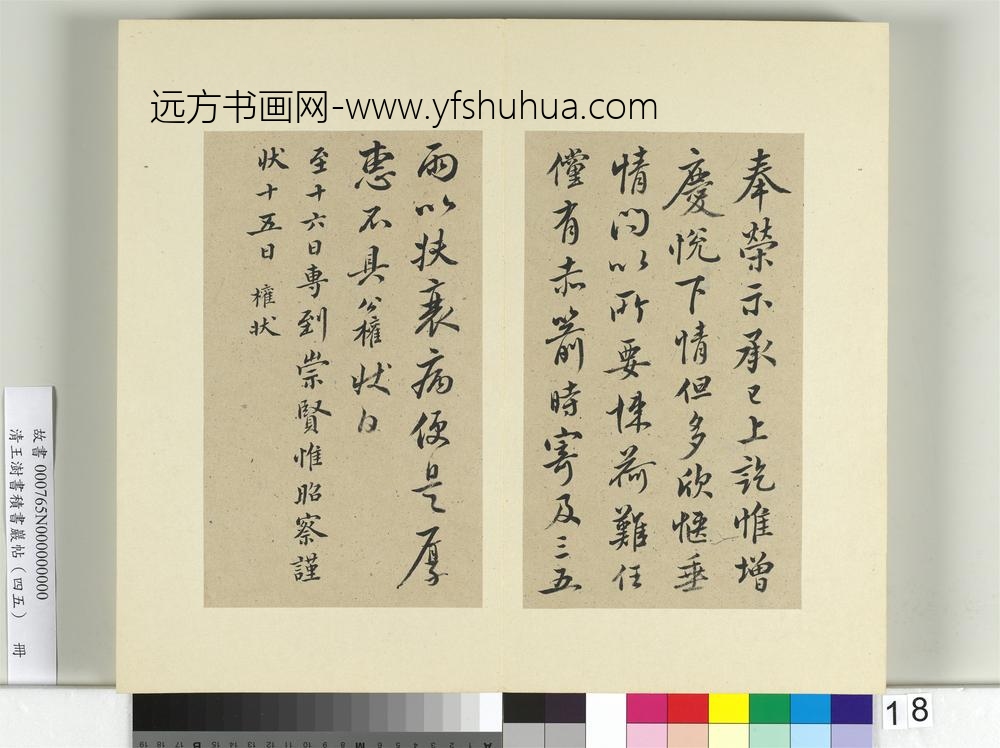 远方书画网-www.yfshuhua.com
奉榮示承已上訖惟增
慶悅下情但多欣惬垂
情問以所要悚荷難任
儻有赤箭時寄及三五
兩以扶衰病便是厚
惠不具公權狀白
至十六日專到崇賢惟昭察謹
狀十五日 權狀
故書 000765N000000000
清王澍書積書巖帖（四五） 冊
18